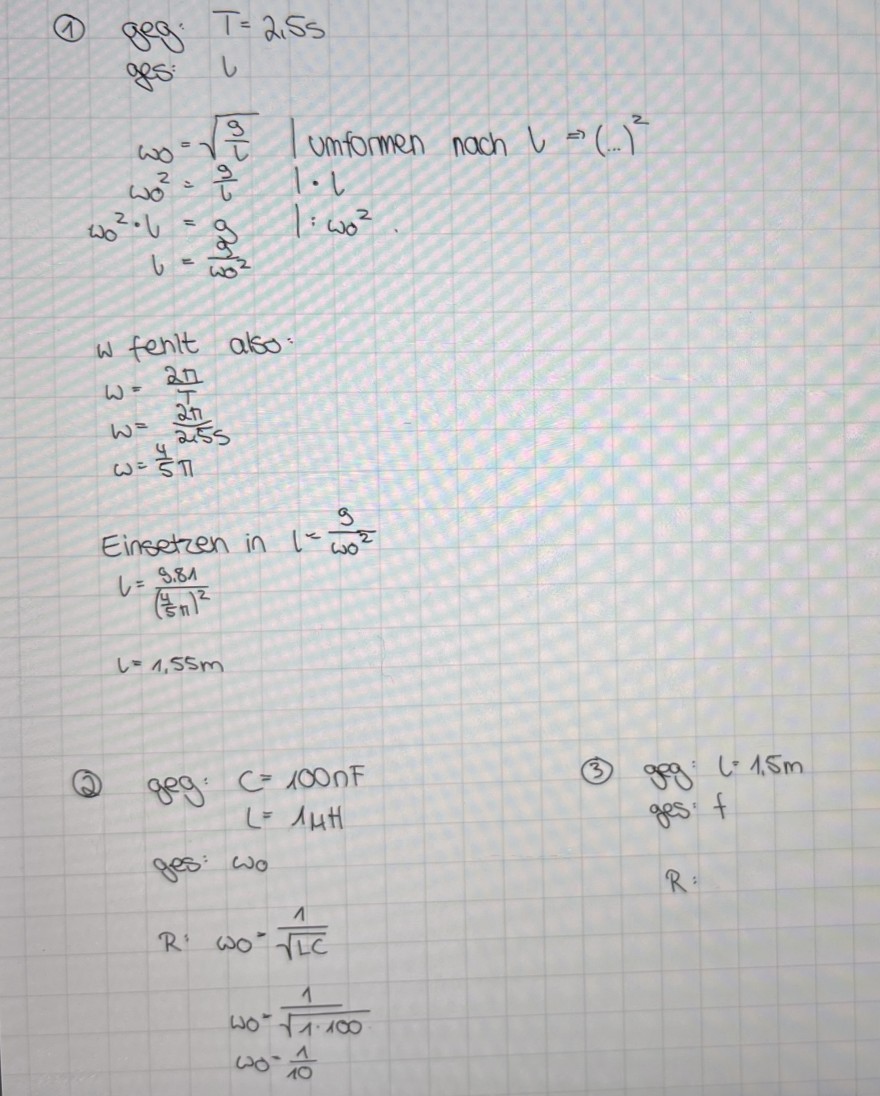 ① geg: T = 2,5s
ges: l
ω0 = √(g/l) | umformen nach l ⇒ (...)²
ω0² = g/l | · l
ω0² · l = g | : ω0²
l = g/ω0²
w fehlt also:
ω = 2π/T
ω = 2π/2,5s
ω = 4/5 π
Einsetzen in l = g/ω0²
l = 9.81/(4/5 π)²
l = 1,55m
② geg: C = 100nF
L = 1μH
ges: ω0
R: ω0 = 1/√LC
ω0 = 1/√1·100
ω0 = 1/10
③ geg: l = 1,5m
ges: f
R: